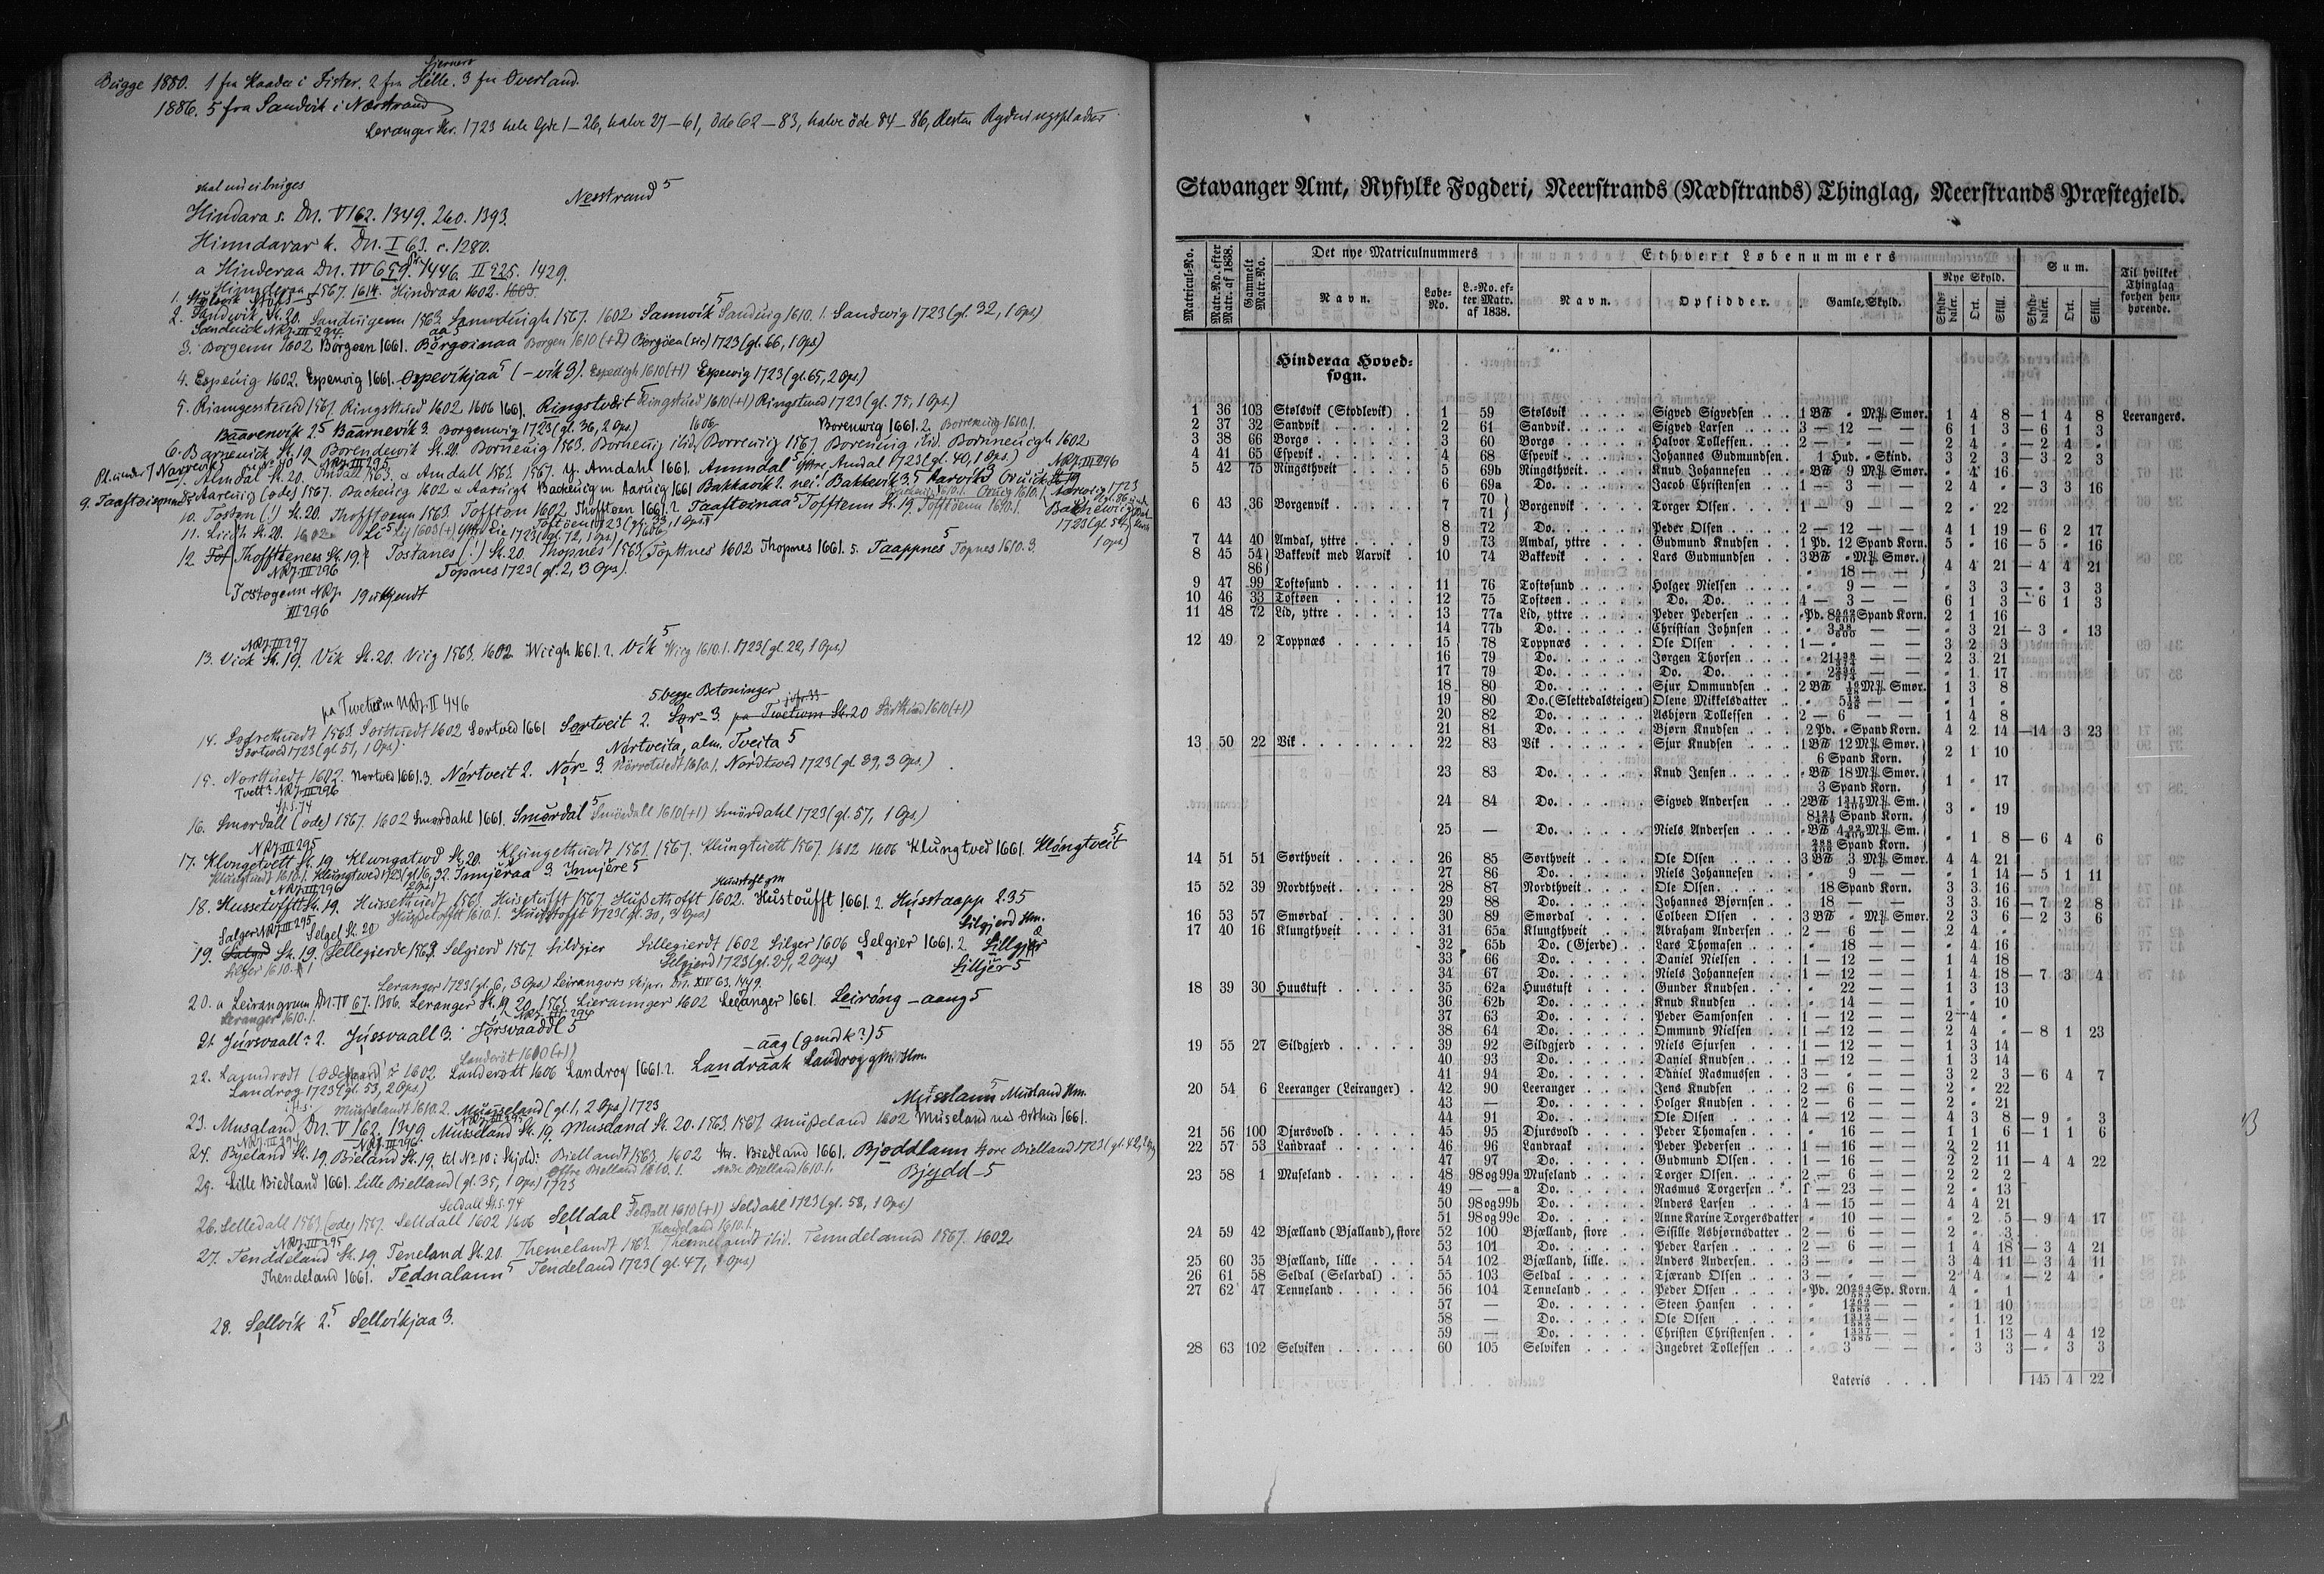 Bugge 1880. 1 fra Kaada i Fister. 2 fra Hjernerø Hille. 3 fra Overland.
1886. 5 fra Sandvik i Nærstrand
Leranger Skr. 1723 hele Gde 1–26, halve 27–61, öde 62–83, halve öde 84–86, Resten Rydningspladser
skal nu ei bruges
Nesstrand 5
Hindara s. Dn. VI 62. 1349. 260. 1393.
Hinndarar k. Dn. I 63. c. 1280.
a Hinderaa Dn. IV 659. 1446. II 525. 1429.
Hinnderaa 1567. 1614. Hindraa 1602. 1603.
2. Sandwik Sk. 20. Sanduigenn 1563 Sannduigh 1567. 1602 Sannvik 5 Sanduig 1610. 1. Sandwig 1723 (gl. 32, 1 Ops)
Sandwick NRJ. III 294
3. Borgenn 1602 Borgøen 1661. Børgoinaa Borgen 1610 (+2) Borgöen (sic) 1723 (gl. 66, 1 Ops)
4. Espeuig 1602. Espenvig 1661. Ospevikjaa 5 (–vik 3). Espedigh 1610 (+1) Espewig 1723 (gl. 65, 2 Ops.)
5. Ringesstuend 1567. Ringsttued 1602 1606 1661. Ringstveit 5 Ringstued 1610 (+1) Ringstwed 1723 (gl. 75, 1 Ops.)
Bäärenvik 2.5 Bäärnevik 3. Borgenwig 1723 (gl. 36, 2 Ops) 1606 Borenwig 1661. 2. Borrenuig 1610. 1.
6. Barnewick Sk. 19. Borendewik Sk. 20. Borneuig 1563. Borneuig ibid. Borreuiig 1567. Boreneuig ibid. Borinneuigh 1602
7. Almdal Sk. 20. Amdall 1563. 1567. y. Amdahl 1661. Ammdal 5 Yttre Amdal 1723 (gl. 40, 1 Ops.)
8. Aarenig (ode) 1567. Backeuig 1602 & Aaruigh Backeuig m Aaruig 1661 Bakkavik 2. nei! Bakkevik 3. 5 Aarvik 3
9. Taaftøi
10. Toston (!) Sk. 20. Thofftøenn 1563. Tofftøn 1602. Thofftøen 1661. 2. Taaftoinaa 5 Tofftenn Sk. 19. Tofftöenn 1610. 1.
Toftöen 1723 (gl. 33, 1 Ops.)
11. Liidh Sk. 20. 1602 Li 5 Lij 1603 (+) Yttre Lie 1723 (gl. 72, 1 Ops)
12. Thoffttenes Sk. 19. Tostanes (!) Sk. 20. Thopnes 1563 Topttnes 1602 Thopnes 1661. 5. Taappnes 5 Topnes 1610. 3.
NRJ. III 296 Topnes 1723 (gl. 2, 3 Ops).
Tostogenn NRJ. 19 ukjendt
III 296
NRJ. III 297
13. Vick Sk. 19. Vik Sk. 20. Viig 1563. 1602 Wiigh 1661. 2. Vik 5 Wiig 1610. 1. 1723 (gl. 22, 1 Ops)
pa Twetium NRJ. II 446
5 begge Betoninger
14. Sørettuedt 1563 Sorttuedt 1602 Sortved 1661 Sørtveit 2. Sør– 3. pa Twetium Sk. 20 Sörttued 1610 (+1)
Sortwed 1723 (gl. 51, 1 Ops)
Nørtveita, alm. Tveita 5
15. Norttuedt 1602. Nortved 1661. 3. Nørtveit 2. Nør– 3. Nörrettuedt 1610. 1. Nordtwed 1723 (gl. 39, 3 Ops.)
Tvett? NRJ. III 296
St. S. 74
16. Smordall (ode) 1567. 1602 Smordahl 1661. Smørdal 5 Smördall 1610 (+1) Smördahl 1723 (gl. 57, 1 Ops.)
NRJ. III 295
17. Klongetvett Sk. 19. Klungatwd Sk. 20. Klungettuedt 1563. 1567. Klungtuett 1567. 1602 1606 Klungtved 1661. Kløngtveit 5
Klungtued 1610. 1. Klungtwed 1723 (gl. 16, 2 Ops) 32. Innjeraa 3 Innjëre 5
NRJ. III 296
18. Hussetofftt Sk. 19. Hussettuedt 1563. Hussetufft 1567. Hussethofft 1602. Hustoufft 1661. 2. Husstaapp 2.3.5
Hussetofftt 1610. 1. Husstofft 1723 (gl. 30, 3 Ops)
Salger NRJ. III 295 Selgel Sk. 20 Silgjerd Hm.
19. Sk. 19. Sellegierde 1563. Selgierd 1567 Sildgier Sillegierdt 1602 Silger 1606 Selgier 1661. 2 Sillgjer
Silger 1610. 1 Selgierd 1723 (gl. 27, 2 Ops.) Silljer 5
Leranger 1723 (gl. 6, 3 Ops) Leirangors skipr. Dn. XIV 63. 1449.
20. a Leirangrum Dn. IV 67. 1306. Leranger Sk. 19. 20. 1563 Lieraunger 1602 Leeranger 1661. Leirøng –aang 5
Leranger 1610. 1.
21. Júrsvaall? 2. Jússvaall 3. Jørsvaaddl 5
–äag (gmdk?) 5
22. Lanndrodt (Odegaard) 1602 Landerott 1606 Landrog 1661. 2. Landraak Landrog gmdk Hm.
Landrog 1723 (gl. 53, 2 Ops.)
Musselandt 1610. 2. Museland (gl. 1, 2 Ops) 1723 Musslann 5 Musland Hm.
23. Musaland Dn. V 162. 1349 Musseland Sk. 19. Museland Sk. 20. 1563. 1567 Musseland 1602 Museland med Orthus 1661.
24. Byeland Sk. 19. Bieland Sk. 19. tel No 10 i Skjold: Biellandt 1563. 1602 Str. Biedland 1661. Bjøddlann Store Bielland 1723 (gl. 42, 2 Ops)
Öffre Bielland 1610. 1. Nedre Bielland 1610. 1. Bjydd–5
25. Lille Biedland 1661. Lille Bielland (gl. 35, 1 Ops) 1723
Seldall St. S. 74
26. Selledall 1563. (ode) 1567. Selldall 1602 1606 Selldal 5 Seldall 1610 (+1) Seldahl 1723 (gl. 58, 1 Ops)
NRJ. III 295 Thendeland 1610. 1.
27. Tenddeland Sk. 19. Teneland Sk. 20. Themelandt 1563. Themelandt ibid. Tenndeland 1567. 1602
Thendeland 1661. Tednalann 5 Tendeland 1723 (gl. 47, 1 Ops)
28. Sellvik 2. 5 Sellvikjaa 3.
Stavanger Amt, Ryfylke Fogderi, Neerstrands (Nædstrands) Thinglag, Neerstrands Præstegjeld.
Matricul-No. Matr.-No. efter Matr. af 1838. Gammelt Matr.-No. Det nye Matriculnummers Ethvert Løbenummers Sum. Til hvilket Thinglag forhen henhørende.
Navn. Løbe-No. L.-No. efter Matr. af 1838. Navn. Opsidder. Gamle Skyld. Nye Skyld. Skylddaler. Ort. Skill. Skylddaler. Ort. Skill.
Hinderaa Hovedsogn.
1 36 103 Stølsvik (Stødlevik) . 1 59 Stølsvik Sigved Sigvedsen 1 BPd - Mk Smør. 1 4 8 — 1 4 8 Leerangers.
2 37 32 Sandvik 2 61 Sandvik Sigved Larsen 3 — 12 — — 6 1 3 — 6 1 3
3 38 66 Borgø 3 60 Borgø Halvor Tollefsen 2 — - — — 2 4 - — 2 4 -
4 41 65 Espevik 4 68 Espevik Johannes Gudmundsen. 1 Hud. - Skind. 3 2 3 — 3 2 3
5 42 75 Ringsthveit 5 69b Ringsthveit Knud Johannesen - BPd 9 Mk Smør. - 4 16
6 69a Do. Jacob Christensen 1 — 3 — — 2 4 - — 3 3 16
6 43 36 Borgenvik 7 70 71 Borgenvik Torger Olsen 1 — 9 — — 2 - 22
8 72 Do. Peder Olsen 2 — 12 — — 4 1 19 — 6 2 17
7 44 40 Amdal, yttre 9 73 Amdal, yttre Gudmund Knudsen 1 Pd. 12 Spand Korn. 5 - 16 — 5 - 16
8 45 54 86 Bakkevik med Aarvik 10 74 Bakkevik Lars Gudmundsen 3 BPd - Mk Smør. - 18 — — 4 4 21 — 4 4 21
9 47 99 Toftesund 11 76 Toftesund Holger Nielsen - 9 — — - 3 3 — - 3 3
10 46 33 Toftøen 12 75 Toftøen Do. Do. 4 — 3 — — 6 1 3 — 6 1 3
11 48 72 Lid, yttre 13 77a Lid, yttre Peder Pedersen - Pd. Spand Korn. 2 1 16
14 77b Do. Christian Johnsen — — - 3 21 — 3 - 13
12 49 2 Toppnæs 15 78 Toppnæs Ole Olsen 1 — - — — 3 2 3
16 79 Do. Jørgen Thorsen — — 2 3 21
17 79 Do. Do. Do. — — - 1 17
18 80 Do. Sjur Ommundsen 2 BPd Mk Smør. 1 3 8
19 80 Do. (Slettedalsteigen) Olene Mikkelsdatter — — - 1 -
20 82 Do. Asbjørn Tollefsen 2 — 6 — — 1 4 8
21 81 Do. Bjørn Knudsen 2 Pd. - Spand Korn. 4 2 14 — 14 3 23
13 50 22 Vik 22 83 Vik Sjur Knudsen 1 BPd 12 Mk Smør. 6 Spand Korn. 2 1 10
23 83 Do. Knud Jensen - BPd 18 Mk Smør. 3 Spand Korn. 1 - 17
24 84 Do. Sigved Andersen 2 BPd Mk Sm. Spand Korn. 3 - 19
25 — Do. Niels Andersen - BPd Mk Sm. Spand Korn. - 1 8 — 6 4 6
14 51 51 Sørthveit 26 85 Sørthveit Ole Olsen 3 BPd 3 Mk Smør. 4 4 21
27 86 Do. Niels Johannesen - 9 — — - 1 14 — 5 1 11
15 52 39 Nordthveit 28 87 Nordthveit Ole Olsen 18 Spand Korn. 3 3 16
29 88 Do. Johannes Bjørnsen 18 — — 3 3 16 — 7 2 8
16 53 57 Smørdal 30 89 Smørdal Colbeen Olsen 3 BPd - Mk Smør. 2 3 6 — 2 3 6
17 40 16 Klungthveit 31 65a Klungthveit Abraham Andersen 2 — 6 — — 2 4 -
32 65b Do. (Gjerde) Lars Thomasen - 18 — — - 4 16
33 66 Do. Daniel Nielsen 1 — 12 — — 1 4 18
34 67 Do. Niels Johannesen 1 — 12 — — 1 4 18 — 7 3 4
18 39 30 Huustuft 35 62a Huustuft Gunder Knudsen - 22 — — 1 3 13
36 62b Do. Knud Knudsen - 14 — — 1 - 10
37 63 Do. Peder Samsonsen 1 — 12 — — 2 4 -
38 64 Do. Ommund Nielsen 1 — 12 — — 2 4 - — 8 1 23
19 55 27 Sildgjerd 39 92 Sildgjerd Niels Sjursen 1 — 12 — — 1 3 14
40 93 Do. Daniel Knudsen 1 — 12 — — 1 3 14
41 94 Do. Daniel Rasmussen 3 — - — — 3 2 3 — 6 4 7
20 54 6 Leeranger (Leiranger) 42 90 Leeranger Jens Knudsen 2 — 6 — — 2 - 22
43 — Do. Holger Knudsen 2 — 6 — — 2 - 21
44 91 Do. Ole Olsen 4 — 12 — — 4 3 8 — 9 - 3
21 56 100 Djursvold 45 95 Djursvold Peder Thomasen - 16 — — 1 1 6 — 1 1 6
22 57 53 Landraak 46 96 Landraak Peder Pedersen 1 — 16 — — 2 2 11
47 97 Do. Gudmund Olsen 1 — 16 — — 2 2 11 — 4 4 22
23 58 1 Museland 48 98 og 99a Museland Torger Olsen 2 — 6 — — 2 2 2
49 — — a Do. Rasmus Torgersen 1 — 23 — — 2 - 13
50 98 og 99b Do. Anders Larsen 4 — 15 — — 4 4 21
51 98 og 99c Do. Anne Karine Torgersdatter - 10 — — - 2 5 — 9 4 17
24 59 42 Bjælland (Bjalland), store 52 100 Bjælland, store Sisille Asbjørnsdatter 2 — 6 — — 2 - 3
53 101 Do. Peder Larsen 2 — 6 — — 1 4 18 — 3 4 21
25 60 35 Bjælland, lille 54 102 Bjælland, lille Anders Andersen 3 — - — — 3 4 11 — 3 4 11
26 61 58 Seldal (Selardal) 55 103 Seldal Tjærand Olsen 3 — - — — 2 4 - — 2 4 -
27 62 47 Tenneland 56 104 Tenneland Peder Olsen - Pd. Sp. Korn. 4 - 1
57 — Do. Steen Hansen — — - 1 10
58 — Do. Ole Olsen — — - 1 12
59 — Do. Christen Christensen — — - 1 13 — 4 4 12
28 63 102 Selviken 60 105 Selviken Ingebret Tollefsen - 3 — — - 3 3 — - 3 3
Lateris 145 4 22